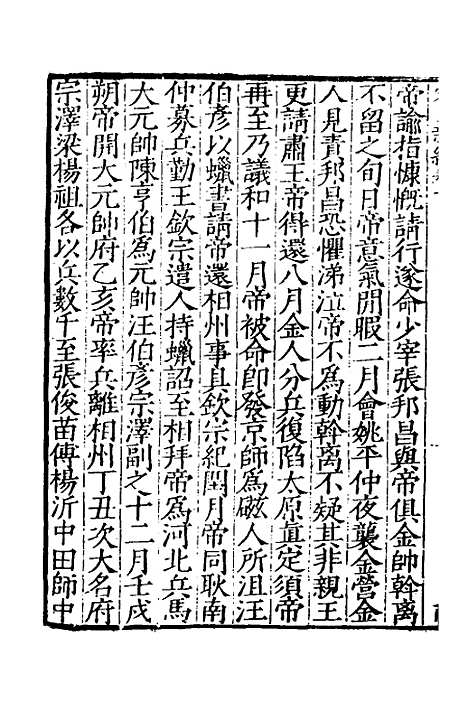 帝諭指慷慨請行遂命少宰張邦昌與帝俱金帥斡離
不留之旬日帝意氣閒暇二月會姚平仲夜襲金營金
人見責邦昌恐懼涕泣帝不爲動斡离不疑其非親王
更請肅王帝得還八月金人分兵復陷太原眞定須帝
再至乃議和十一月帝被命卽發京師爲磁人所沮汪
伯彦以蠟書請帝還相州事具欽宗紀閏月帝同耿南
仲募兵勤王欽宗遣人持蠟詔至相拜帝爲河北兵馬
大元帥陳亨伯爲元帥汪伯彦宗澤副之十二月壬戌
朔帝開大元帥府乙亥帝率兵離相州丁丑次大名府
宗澤梁楊祖各以兵數千至張俊苗傅楊沂中田師中